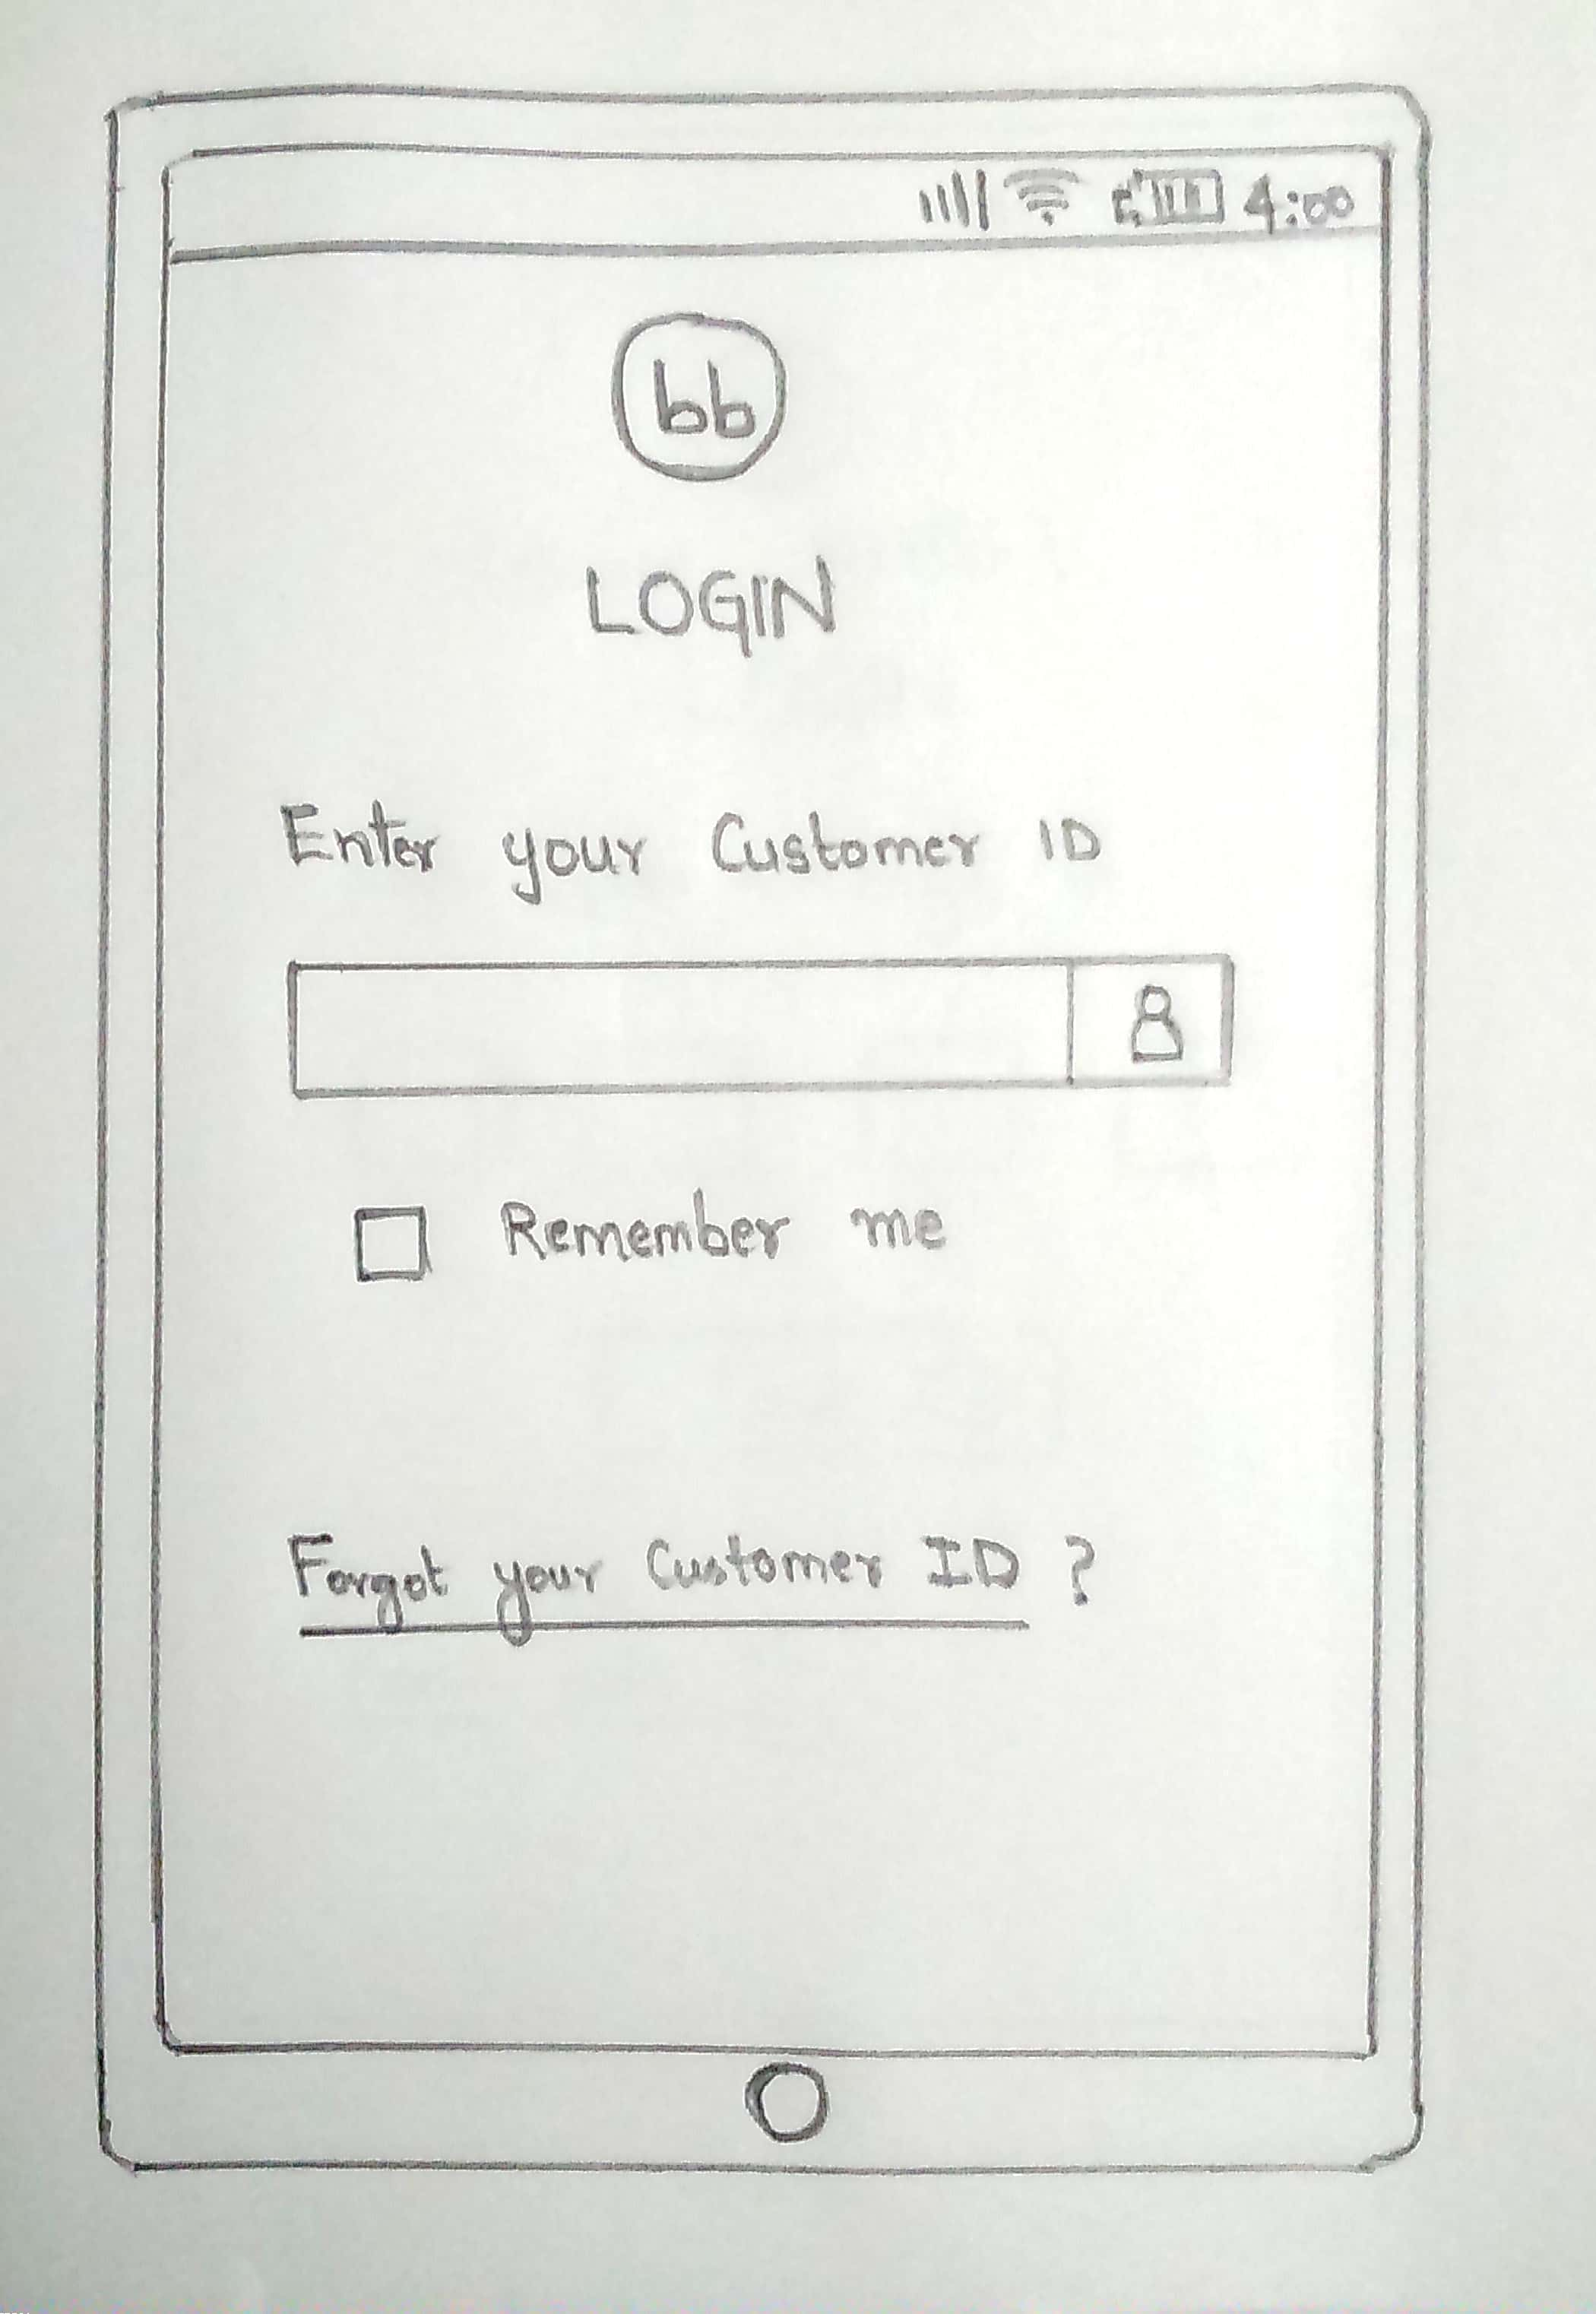 4:00
bb
LOGIN
Enter your Customer ID
Remember me
Forgot your Customer ID ?